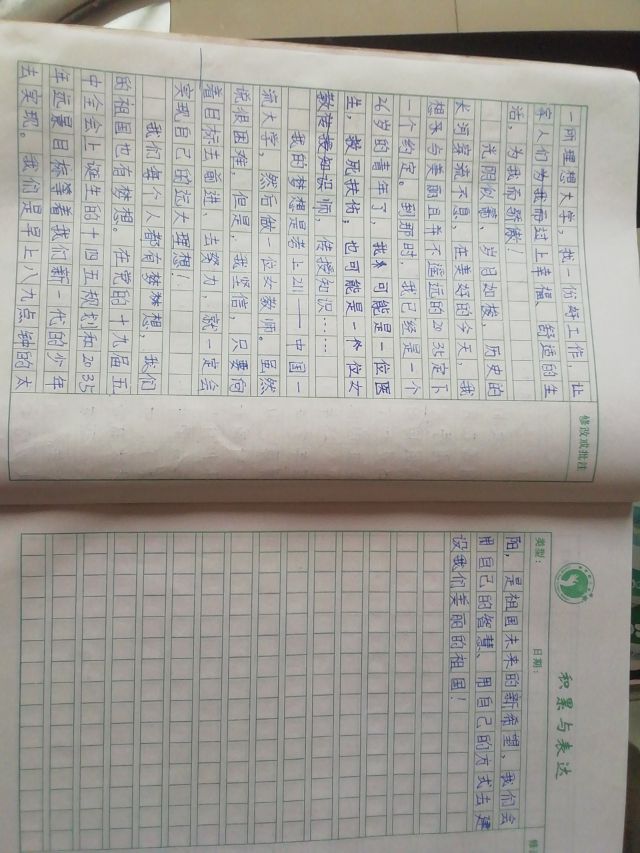 一所理想大学，找一份好工作，让
家人们为我而过上幸福、舒适的生
活，为我而骄傲！
光阴似箭，岁月如梭，历史的
长河川流不息，在美好的今天，我
想承与美丽且并不遥远的2035定下
一个约定。到那时，我已经是一个
26岁的青年了，我可能是一位医
生，救死扶伤；也可能是一个位女
教师，传授知识……
我的梦想是考上211——中国一
流大学，然后做一位女教师。虽然
说很困难，但是，我坚信，只要向
着目标去前进，去努力，就一定会
实现自己的远大理想！
我们每个人都有梦梦想，我们
的祖国也有梦想。在党的十九届五
中全会上诞生的十四五规划和2035
年远景目标等着我们新一代的少年
去实现。我们是早上八九点钟的太
修改或批注
积累与表达
类型：
日期：
修
阳，是祖国未来的新希望，我们会
用自己的智慧、用自己的方式去建
设我们美丽的祖国！